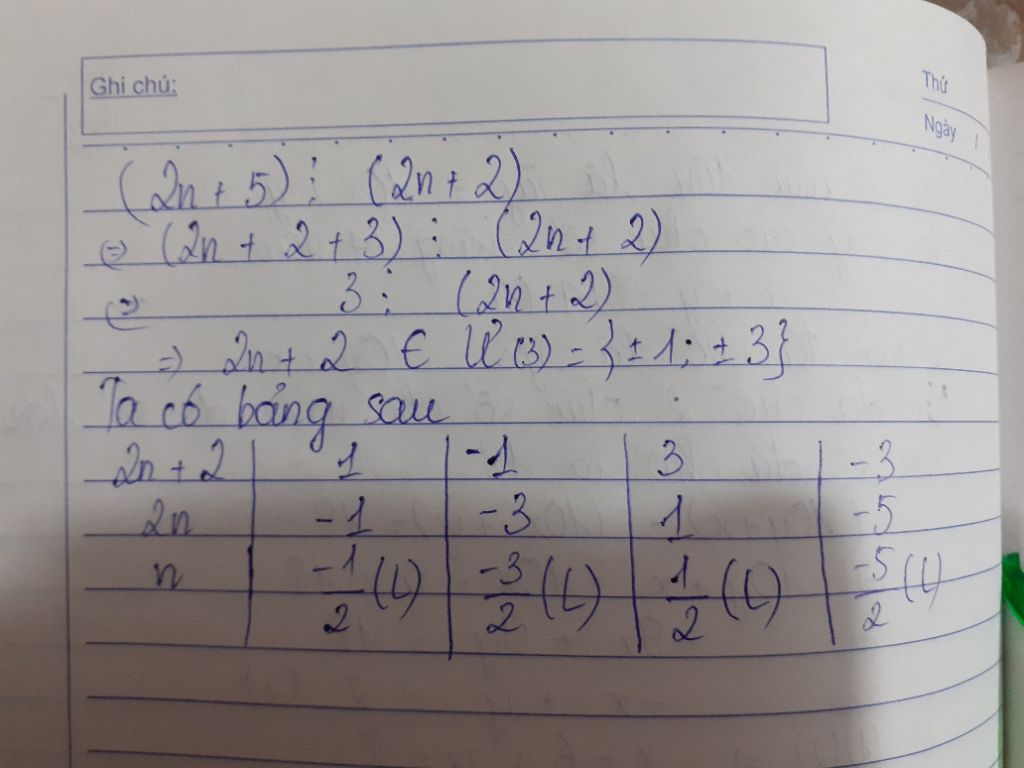 Ghi chú:
Thứ
Ngày /
(2n + 5) ⋮ (2n + 2)
⇔ (2n + 2 + 3) ⋮ (2n + 2)
⇔ 3 ⋮ (2n + 2)
⇒ 2n + 2 ∈ Ư(3) = {±1; ±3}
Ta có bảng sau
2n + 2 | 1 | -1 | 3 | -3
2n | -1 | -3 | 1 | -5
n | -1/2 (L) | -3/2 (L) | 1/2 (L) | -5/2 (L)